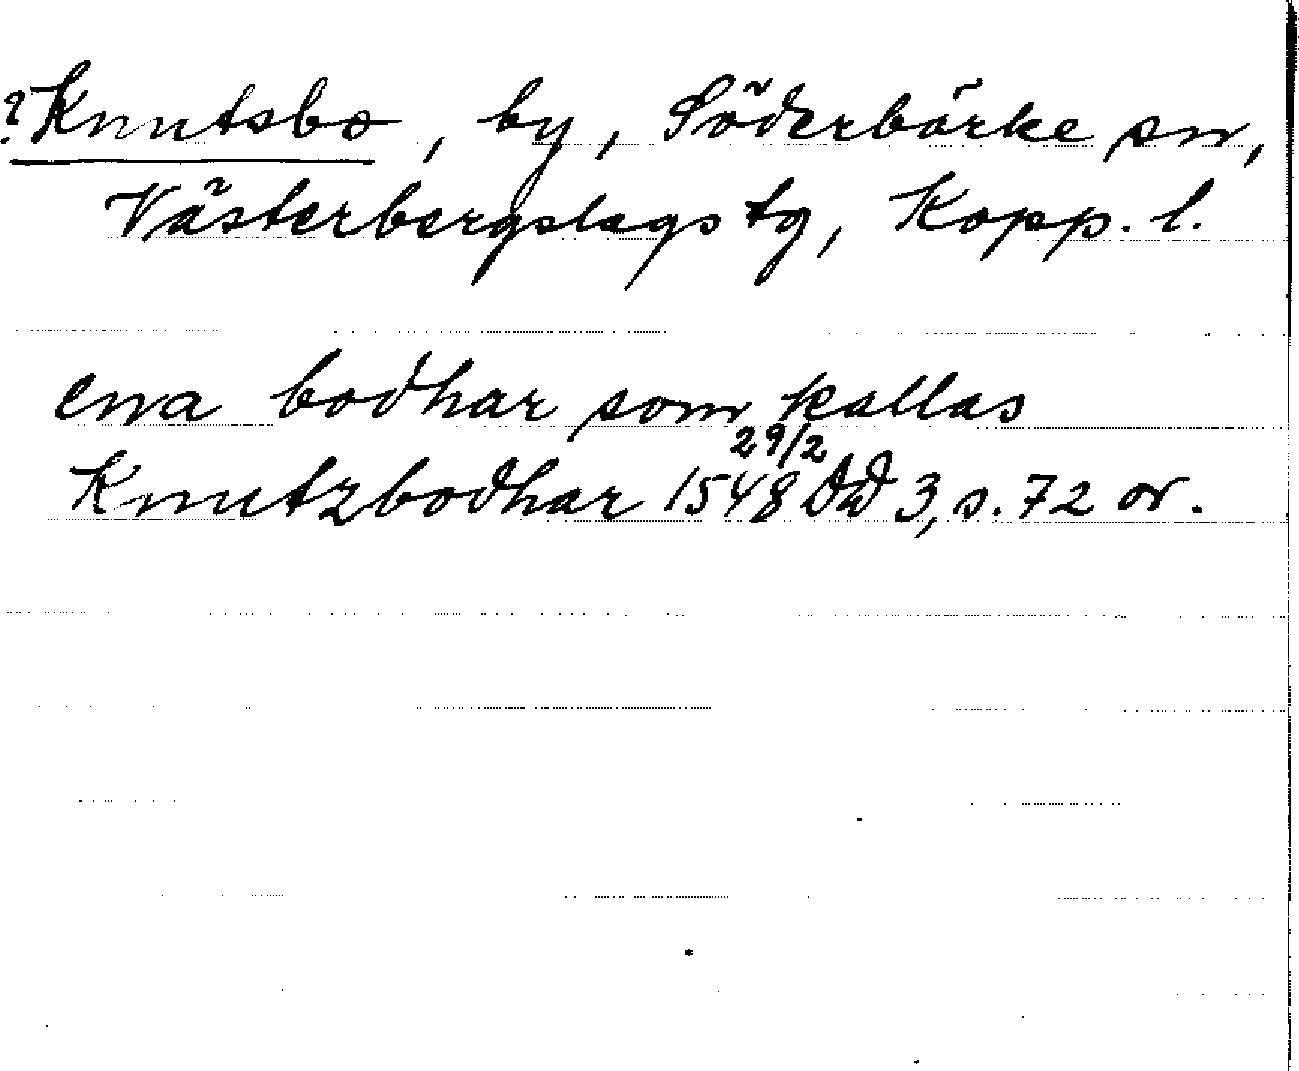 ?Knutsbo, by, Söderbärke sn,
Västerbergslags tg, Kopp. l.
ena bodhar som kallas
Knutzbodhar 1548 29/2 DD 3, s. 72 or.